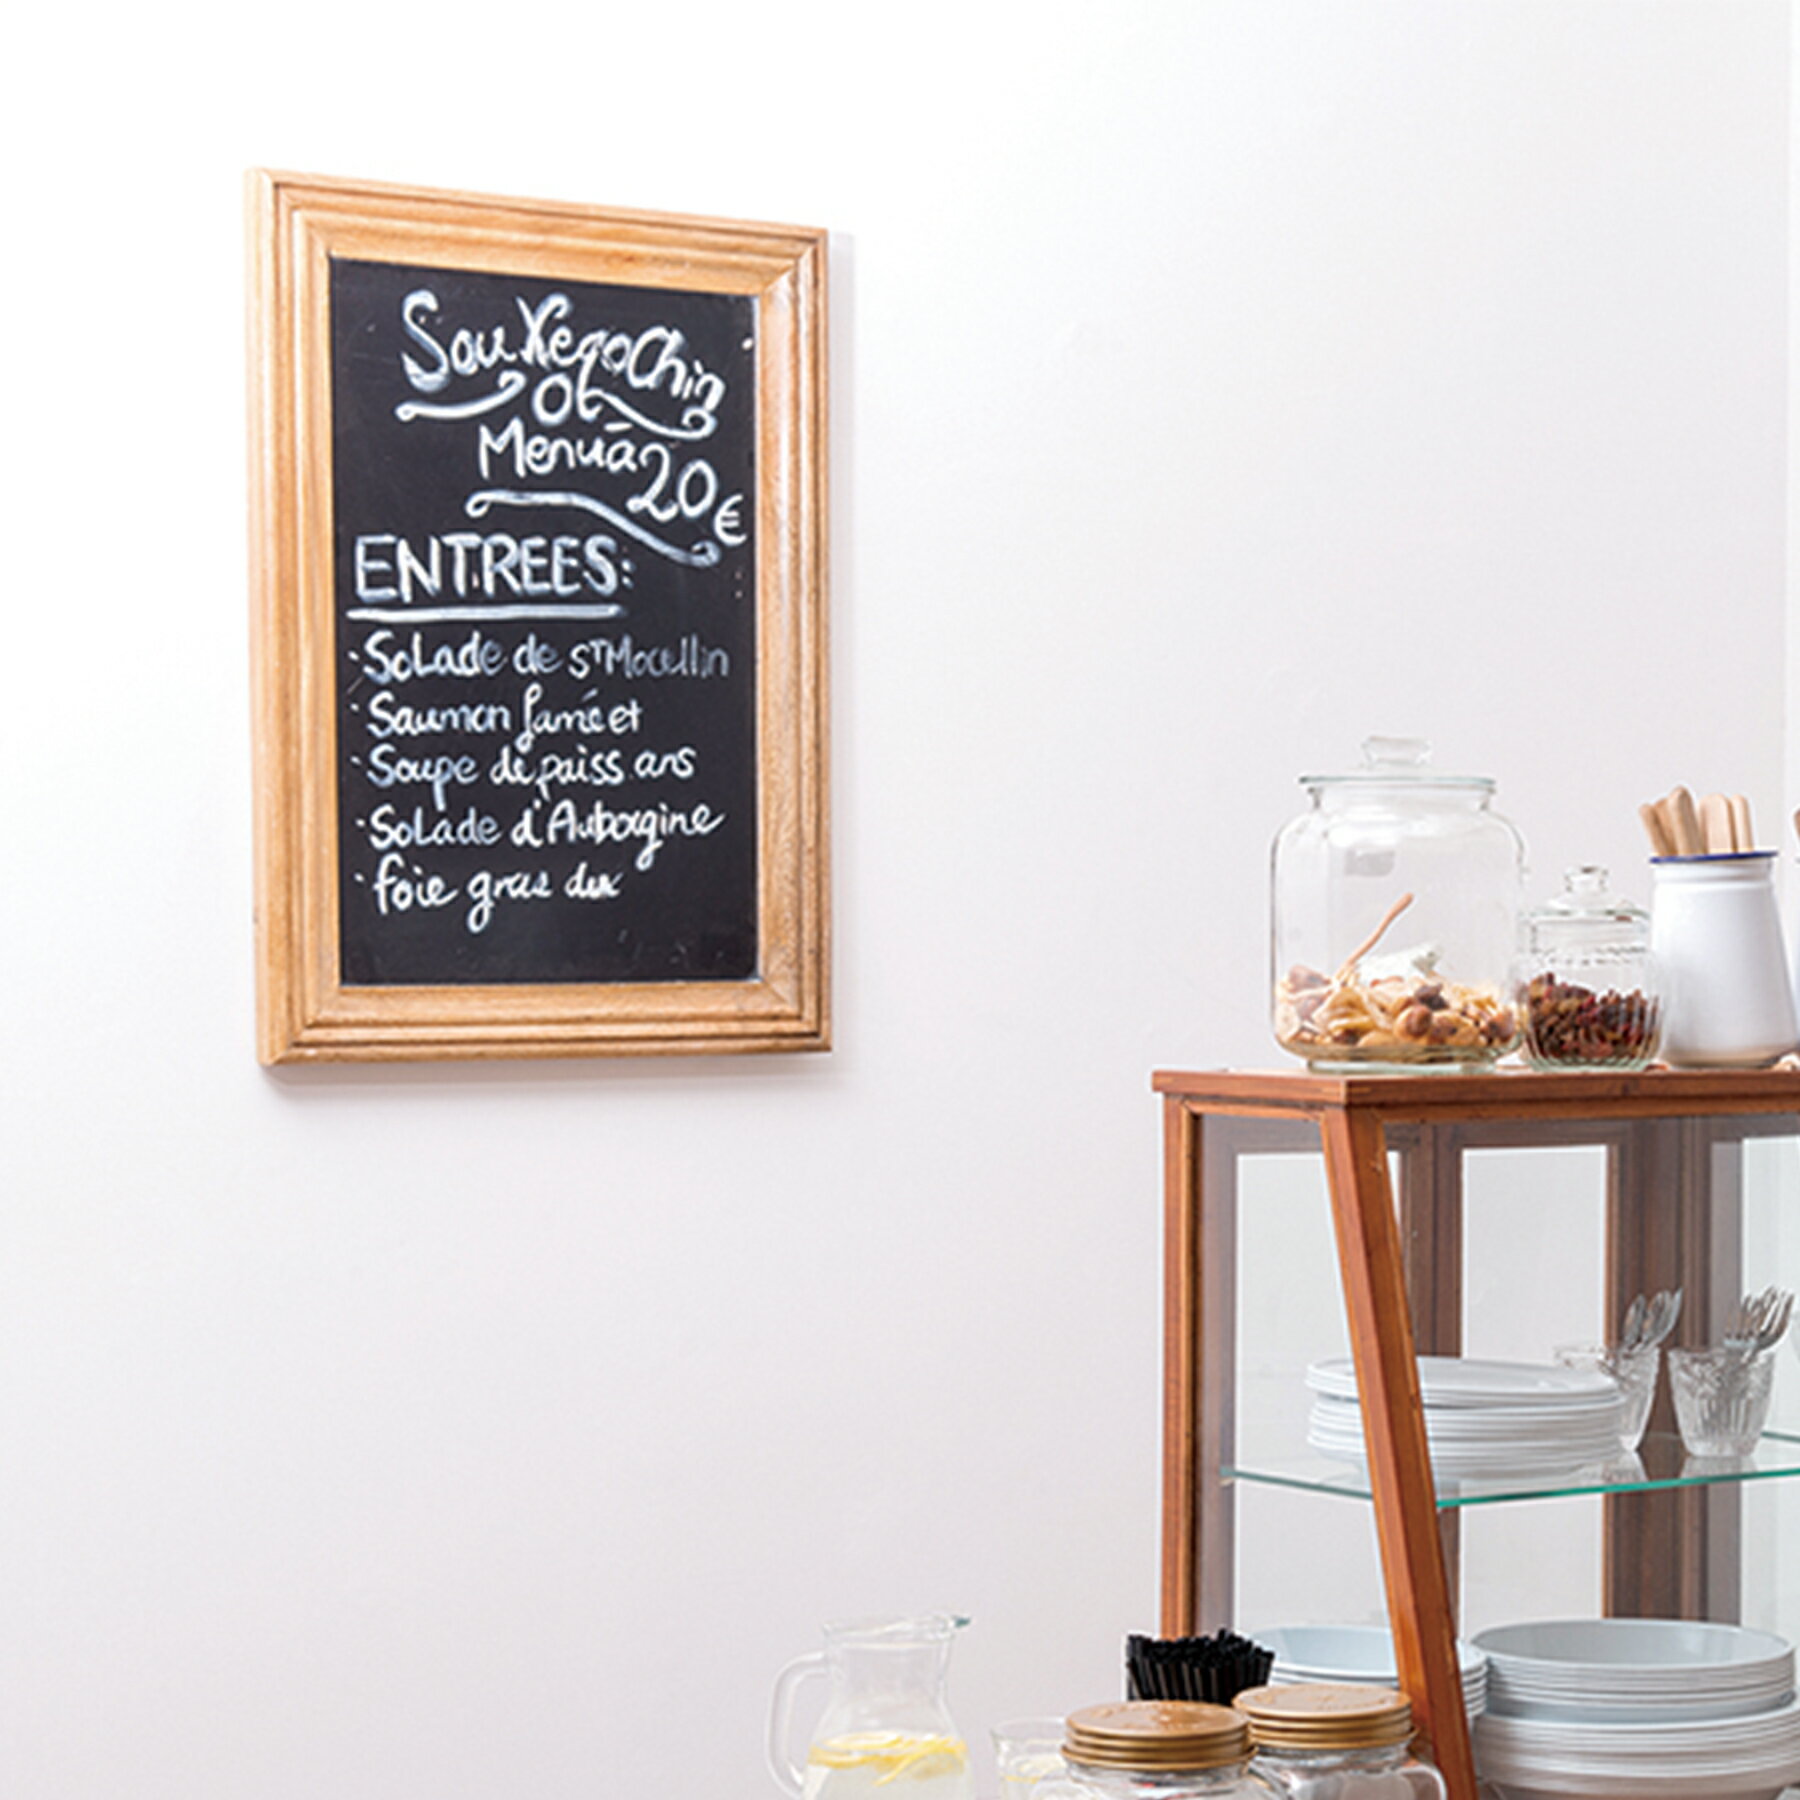 Sou XeqoChin
Ol
Menuá 20€
ENTREES:
·SoLade de sT Mocellin
·Saumon famé et
·Soupe de paiss ans
·SoLade d'Auborgine
·foie gras dux